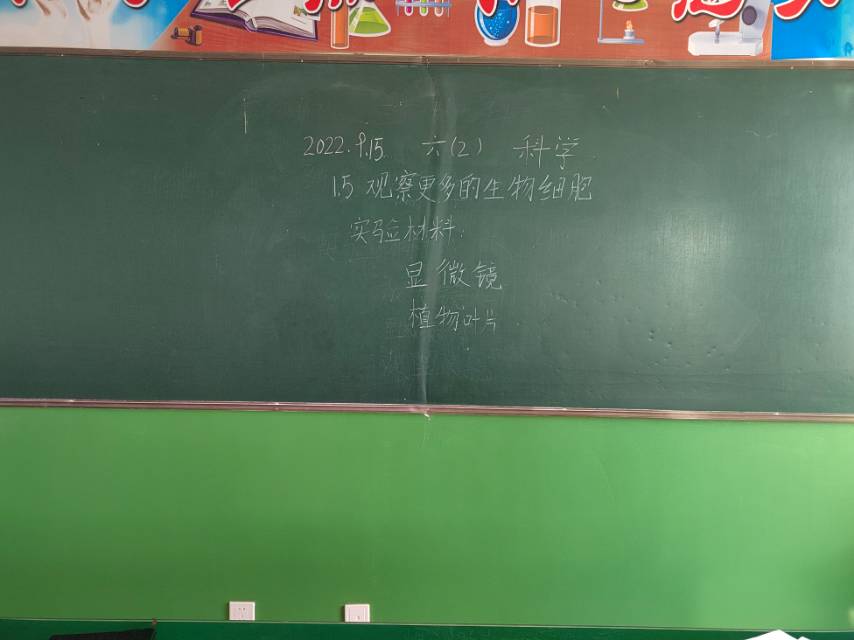 2022.9.15 六(2) 科学
1.5 观察更多的生物细胞
实验材料:
显微镜
植物叶片